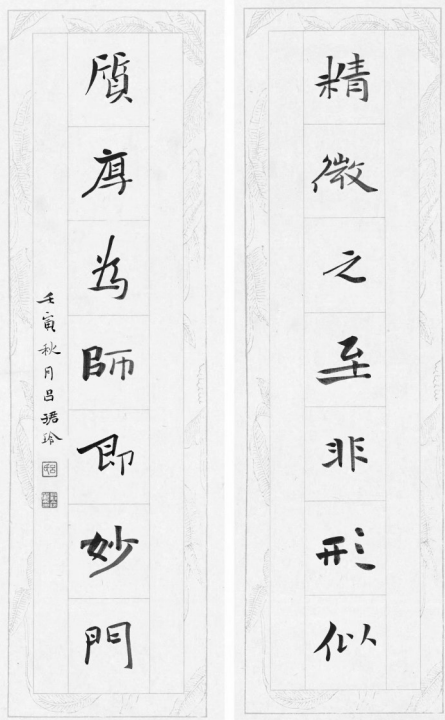 精微之至非形似
質厚為師即妙門
壬寅秋月吕珺玲